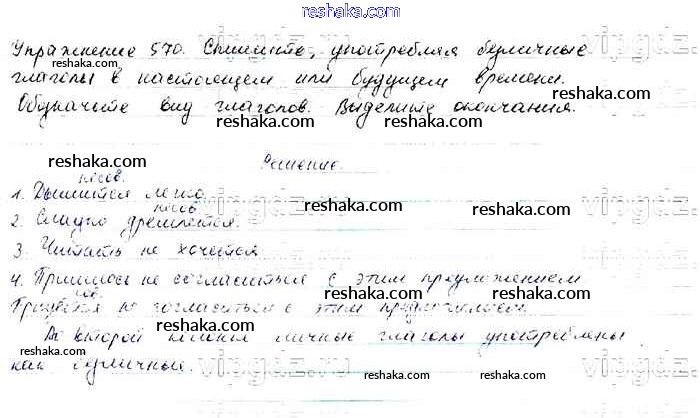 reshaka.com
Упражнение 570. Спишите, употребляя безличные
глаголы в настоящем или будущем времени.
Обозначьте вид глаголов. Выделите окончания.
reshaka.com reshaka.com reshaka.com
reshaka.com Решение. reshaka.com
несов.
1. Дышится легко
несов.
2. Сладко дремлется.
reshaka.com reshaka.com
3. Читать не хочется
reshaka.com reshaka.com
4. Пришлось не согласиться с этим предложением
сов.
Придётся не согласиться с этим предложением
reshaka.com reshaka.com reshaka.com
Во второй колонке личные глаголы употреблены
reshaka.com
как безличные.
reshaka.com reshaka.com reshaka.com
vipgdz.com